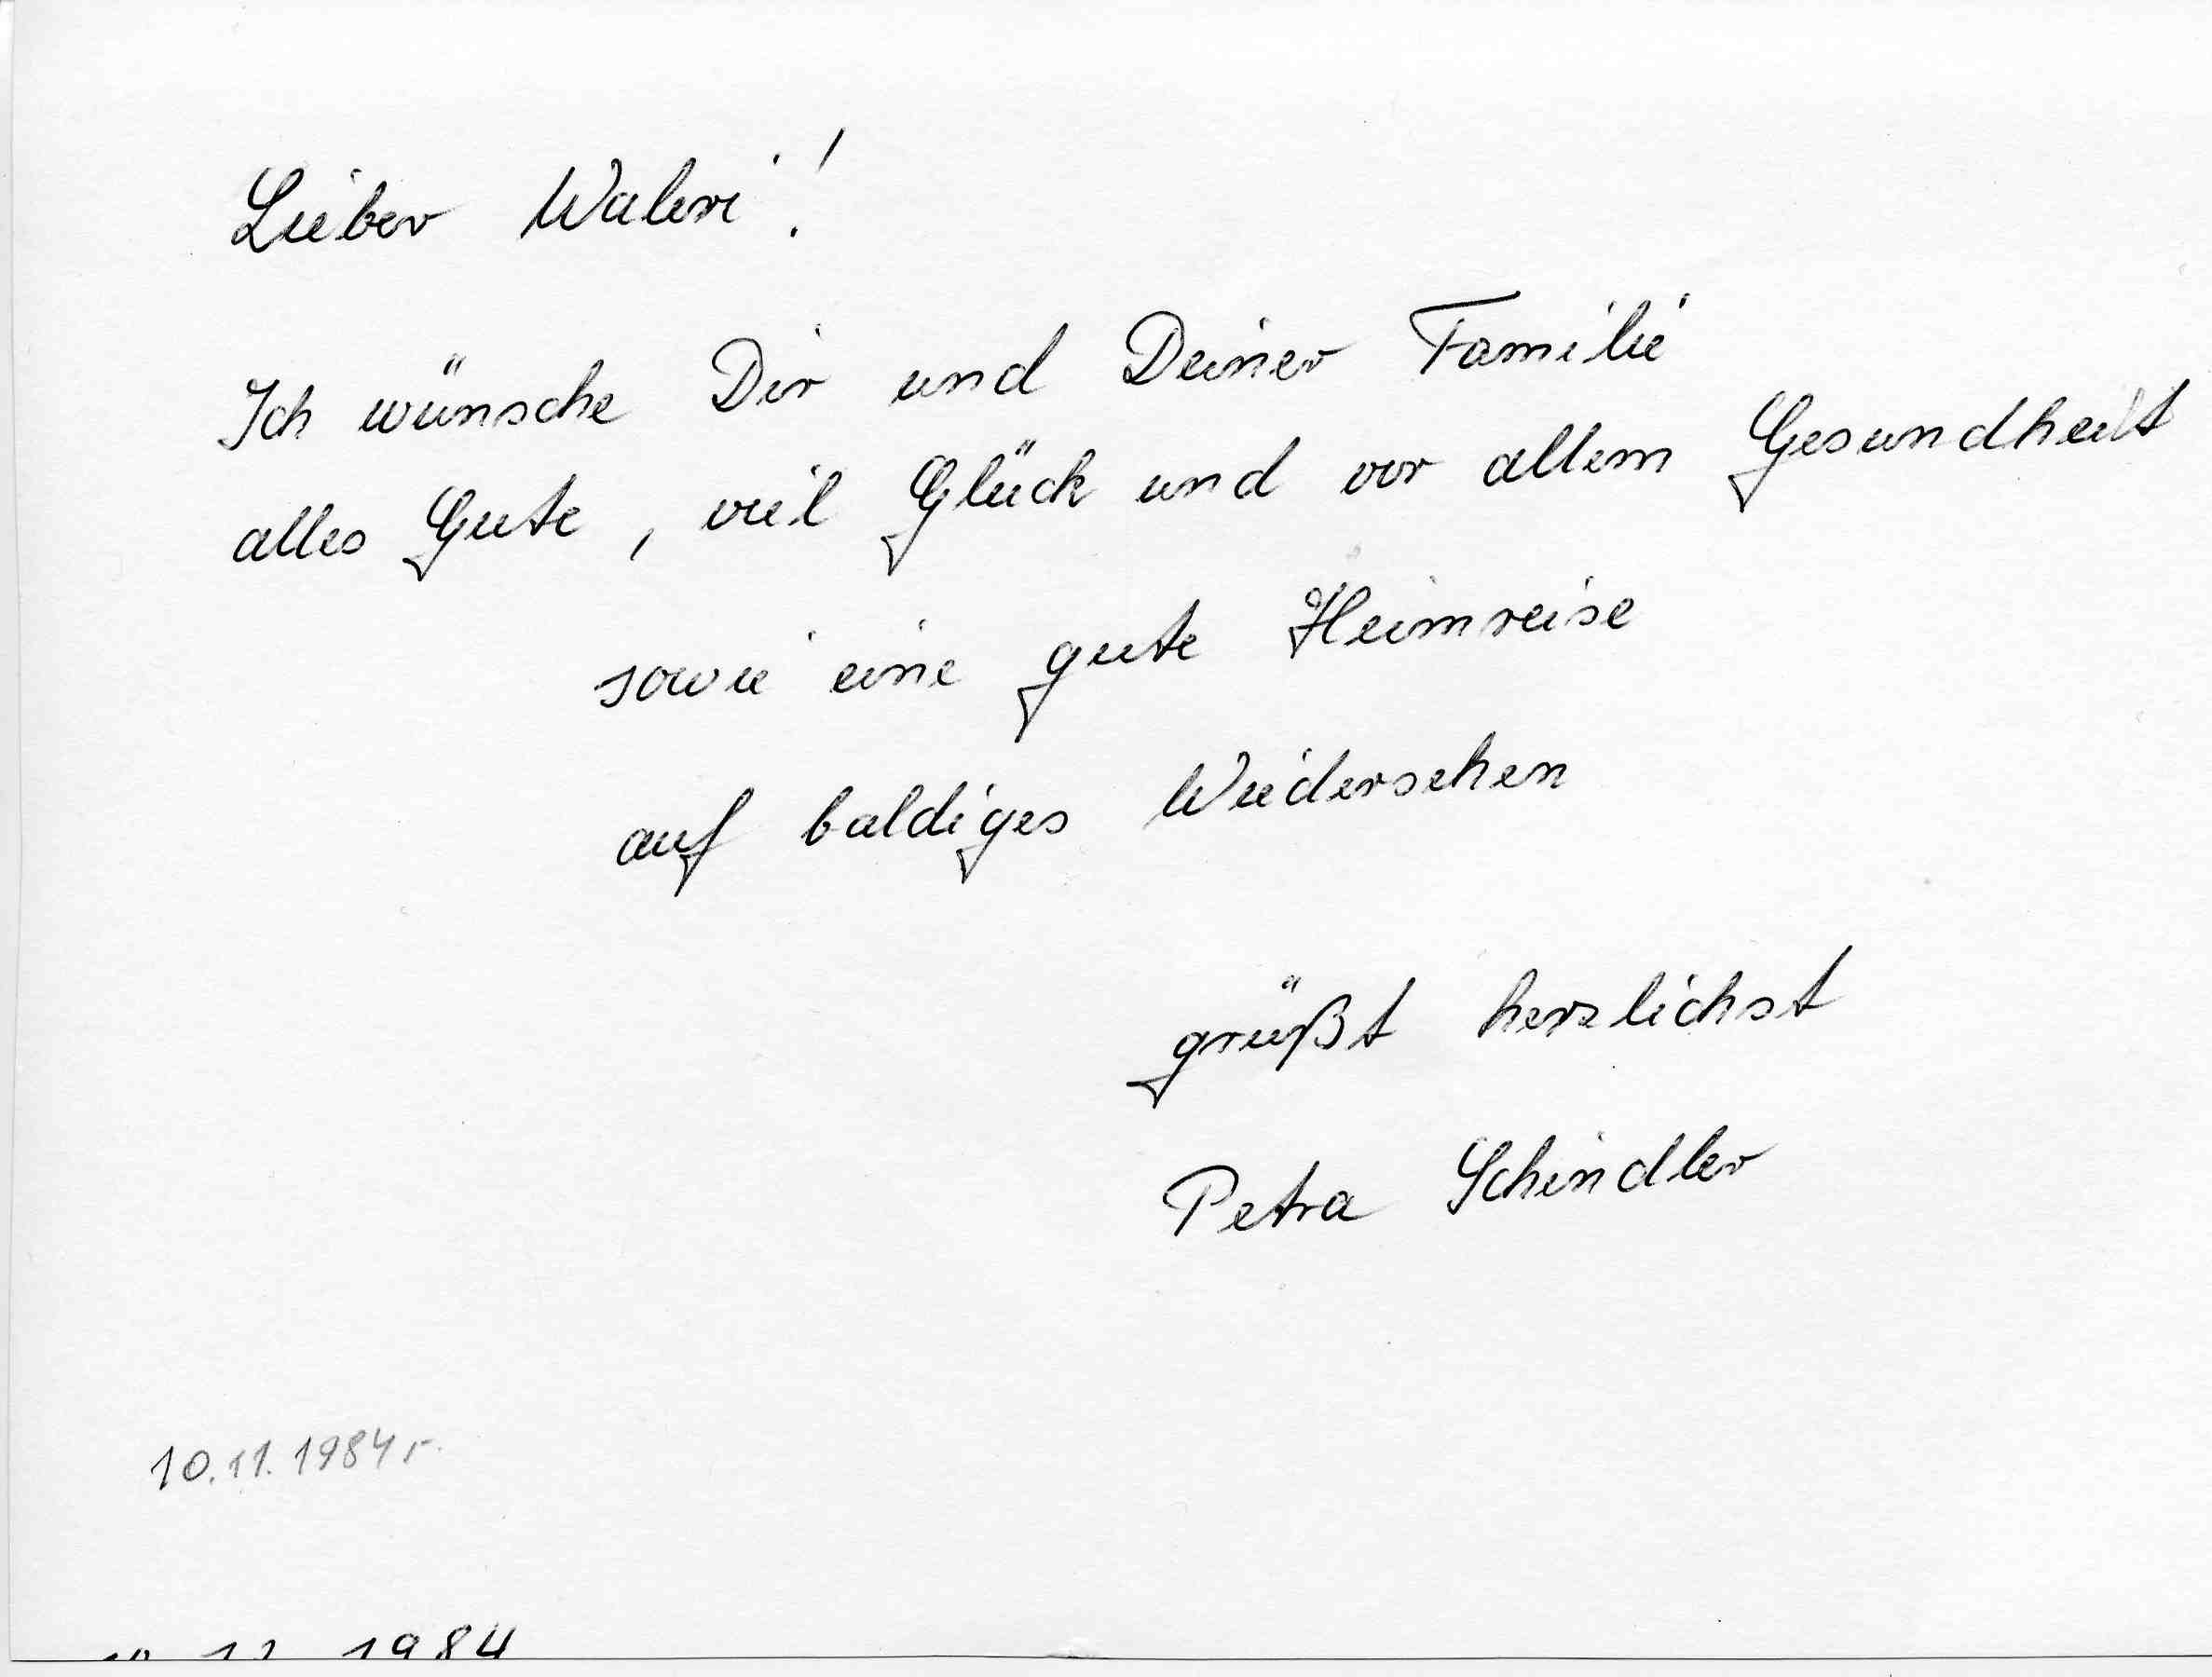 Lieber Waleri!
Ich wünsche Dir und Deiner Familie
alles Gute, viel Glück und vor allem Gesundheit
sowie eine gute Heimreise
auf baldiges Wiedersehen
grüßt herzlichst
Petra Schindler
10.11.1984 г.
1984